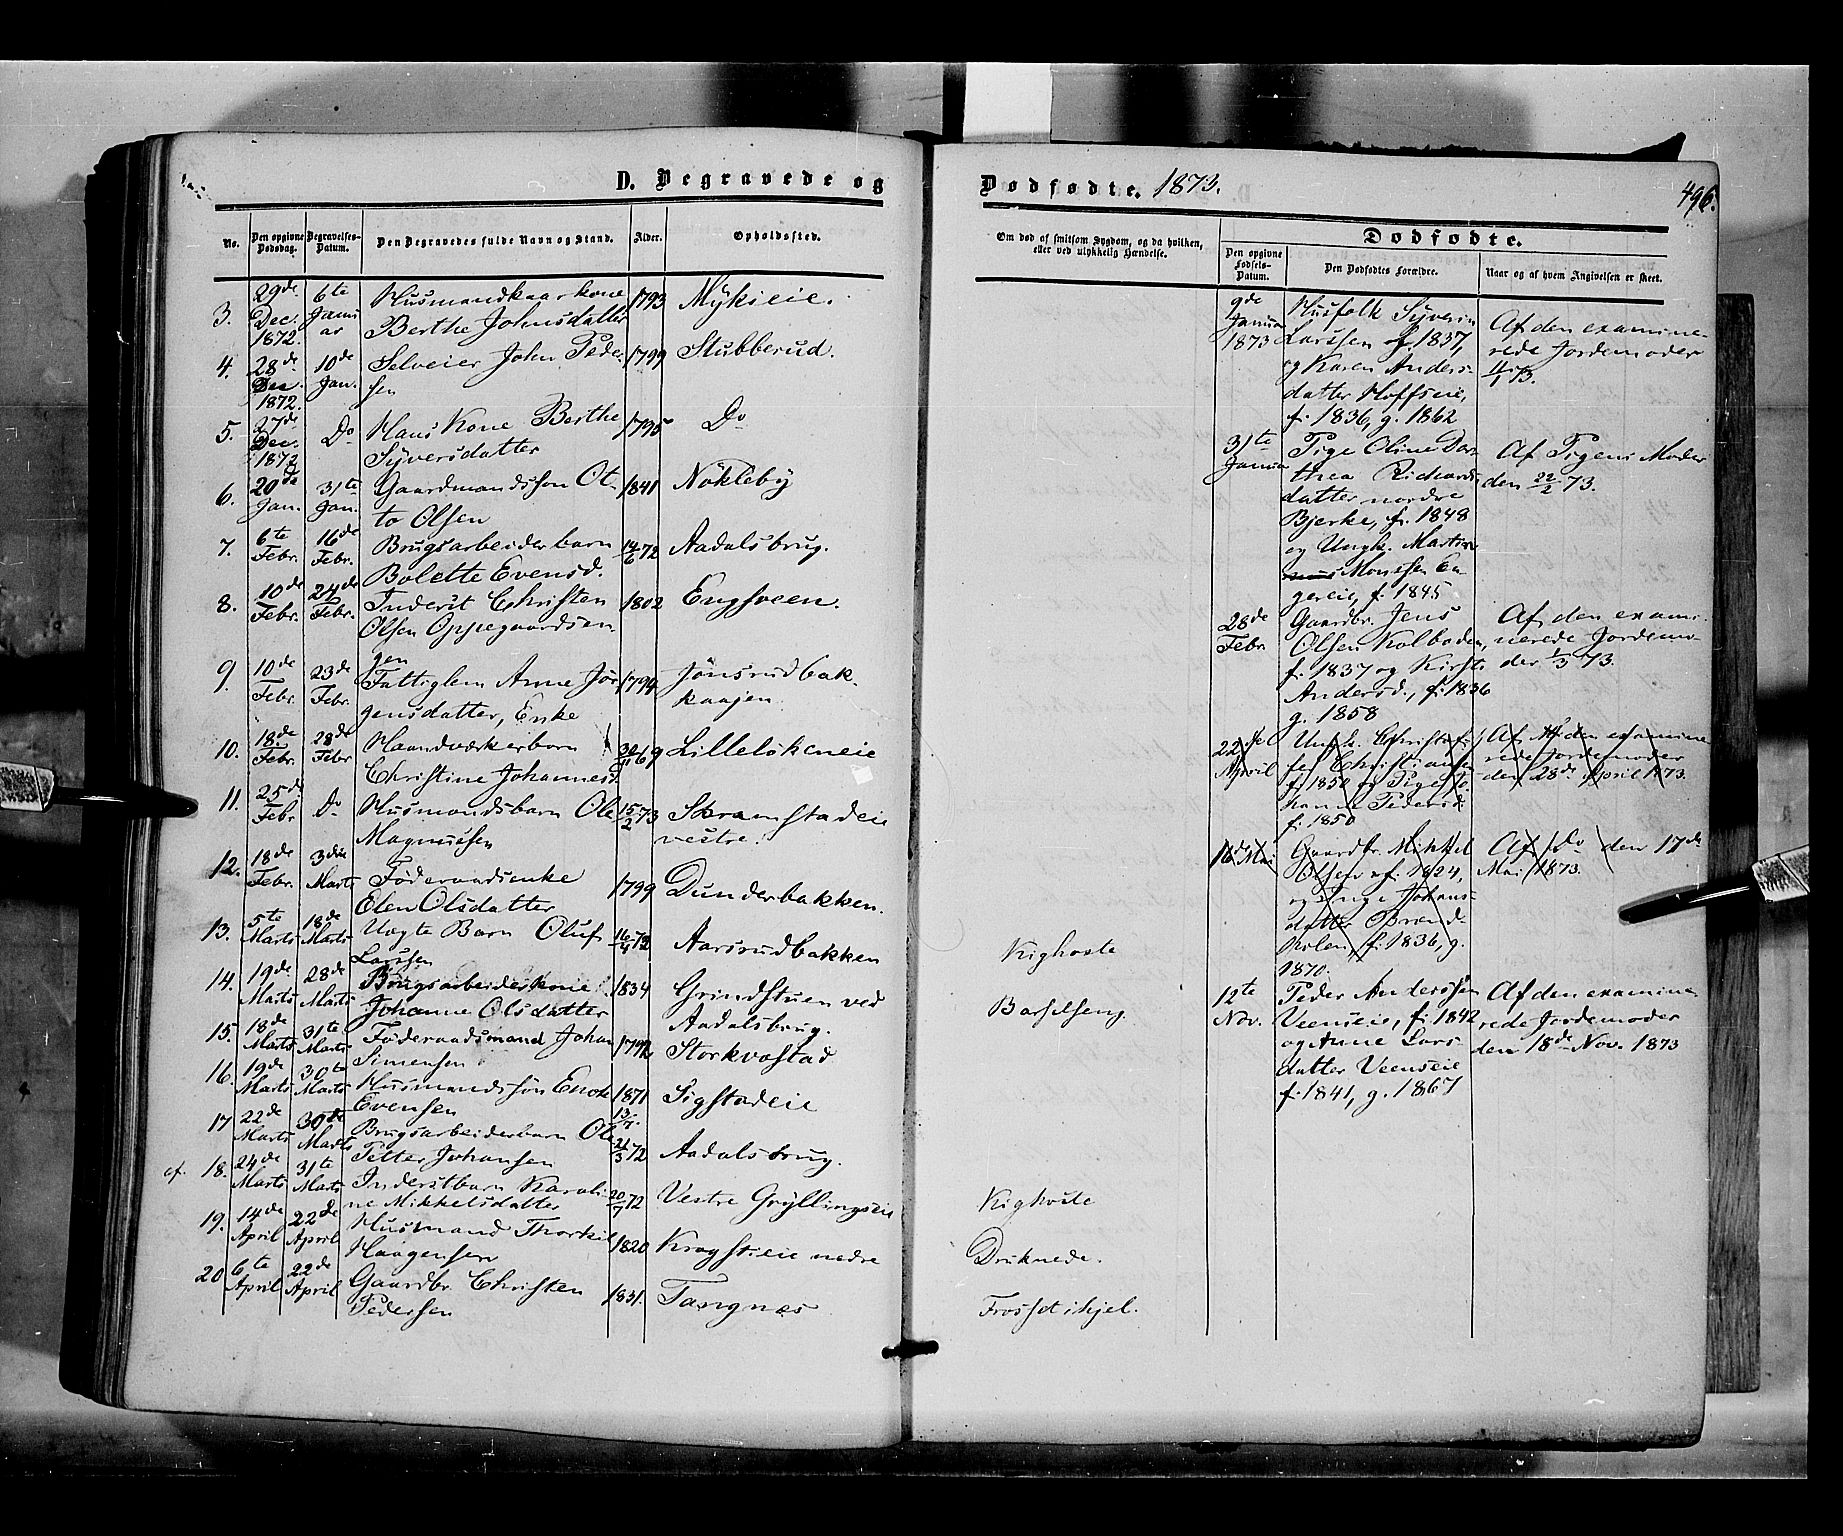 D. Begravede og
No.
Den opgivne Dødsdag.
Begravelses-Datum.
Den Begravedes fulde Navn og Stand.
Alder.
Opholdssted.
3. 29de Dec. 1872. 6te Januar Husmandkaarkone Berthe Johnsdatter 1793 Mykieie.
4. 28de Dec. 1872. 10de Jan. Selveier John Pedersen 1799 Stubberud.
5. 27de Dec. 1872 Do Hans Kone Berthe Syversdatter 1795 Do
6. 20de Jan. 31te Jan. Gaardmandssøn Otto Olsen 1841 Nökleby
7. 6te Febr. 16de Febr. Brugsarbeiderbarn Bolette Evensd. 14/6 72 Aadalsbrug.
8. 10de Febr. 24de Febr. Inderst Christen Olsen Oppegaardsengen 1802 Engsveen.
9. 10de Febr. 23de Febr. Fattiglem Anne Jörgensdatter, Enke 1794 Jönsrudbakkaajen
10. 18de Febr. 28de Febr Haandværkerbarn Christine Johannesd. 69 Lillelökeneie
11. 25de Febr Do Husmandsbarn Ole Magnussen 15/2 73 Skramstadeie vestre.
12. 18de Febr. 3die Marts Föderaadsenke Elen Olsdatter 1799 Dunderbakken.
13. 5te Marts 18de Marts Uægte Barn Oluf Larssen 16/4 72 Aarsrudbakken
14. 19de Marts 28de Marts Brugsarbeiderkone Johanne Olsdatter 1834 Grindstuen ved Aadalsbrug.
15. 18de Marts 31te Marts Föderaadsmand Johan Simensen 1792 Storkvastad
16. 19de Marts 30te Marts Husmandssøn Enok Evensen 1871 13/7. Sigstadeie
17 22de Marts 30te Marts Brugsarbeiderbarn Ole Petter Johansen 21/3 72 Aadalsbrug.
cf. 18. 24de Marts 31te Marts Inderstbarn Karoline Mikkelsdatter 20/7 72 Vestre Gryllingseie
19. 14de April 22de April Husmand Thorkil Haagensen 1820 Kragstieie nedre
20 6te April 22de April Gaardbr. Christen Pedersen 1831. Tangnæs
Dødfødte. 1873.
496.
Om død af smitsom Sygdom, og da hvilken, eller ved ulykkelig Hændelse.
Dødfødte.
Den opgivne Fødsels-Datum.
Den Dødfødtes Forældre.
Naar og af hvem Angivelsen er skeet.
Kighoste
Barselseng.
Kighoste
Druknede.
Frosset ihjel.
9de Januar 1873
Husfolk Syverin
Larssen f. 1837,
og Karen Anders-
datter Hoffseie,
f. 1836, g. 1862
Af den examine-
rede Jordemoder
11/1 73.
31te Januar
Pige Oline Dor-
thea Richards-
datter nordre
Bjerke, f. 1848
og Ungk. Martin
Monssen En-
gereie, f. 1845
Af Pigens Moder
den 22/2 73.
28de Febr
Gaardbr. Jens
Olsen Kolbaden,
f. 1837 og Kirsti
Andersd., f. 1836
g. 1858
Af den exami-
nerede Jordemo-
der 1/3 73.
22de April
Ungk. Christof-
fer Christiansen
f. 1850 og Pige Jo-
hanne Pedersd.
f. 1850
Af den examine
rede Jordemoder
den 28de April 1873.
16de Mai
Gaardbr. Mikkel
Olsen f. 1824,
og Inge Johans-
datter Brænd-
kolen, f. 1836, g.
1870.
Af Do den 17de
Mai 1873.
12te Nov.
Peder Anderssen
Veenseie, f. 1842
og Anne Lars-
datter Veenseie
f. 1841, g. 1867
Af den examine-
rede Jordemoder
den 18de Nov. 1873